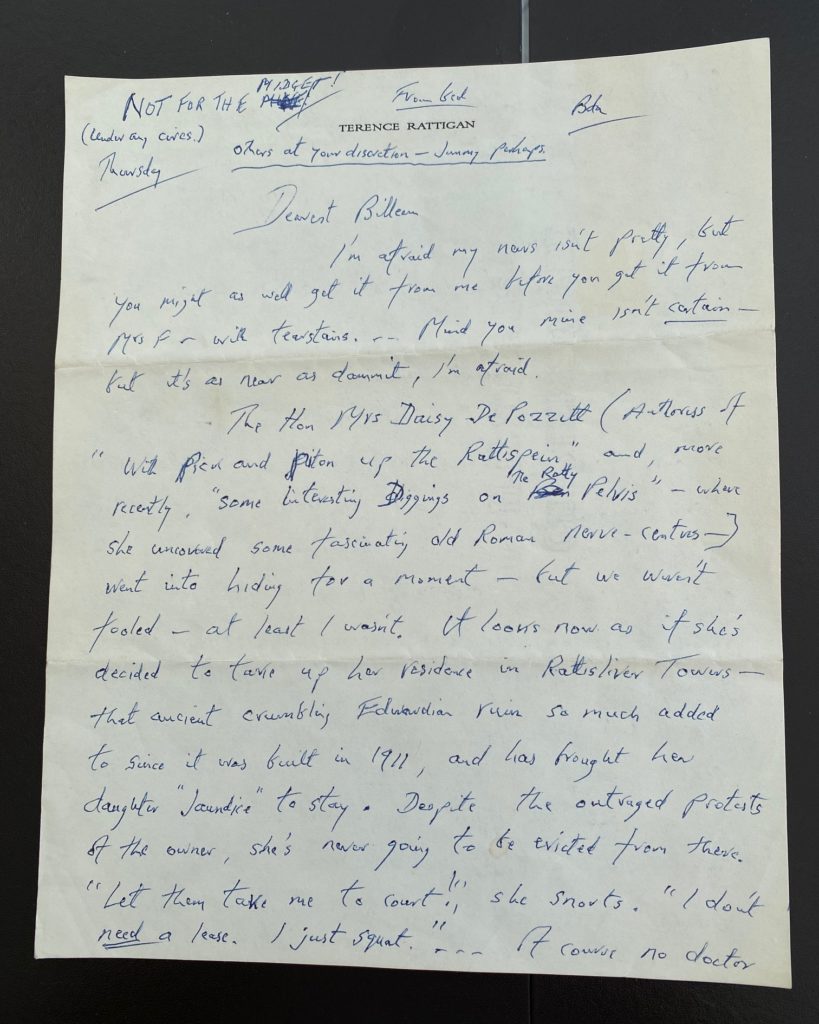 NOT FOR THE MIDGET!
(Under any circs.)
From bed
Bda
TERENCE RATTIGAN
Thursday
others at your discretion – Jimmy perhaps.
Dearest
I'm afraid my news isn't pretty, but
you might as well get it from me before you get it from
Mrs F – with tearstains. -- Mind you mine isn't certain –
but it's as near as dammit, I'm afraid.
The Hon Mrs Daisy De Pozzitt (Authoress of
"With Pick and Piton up the Rattispein" and, more
recently, "Some Interesting Diggings on The Ratty Pelvis" – where
she uncovered some fascinating old Roman nerve-centres –)
went into hiding for a moment – but we weren't
fooled – at least I wasn't. It looks now as if she's
decided to take up her residence in Rattisliver Towers –
that ancient crumbling Edwardian ruin so much added
to since it was built in 1911, and has brought her
daughter "Jaundice" to stay. Despite the outraged protests
of the owner, she's never going to be evicted from there.
"Let them take me to court!", she snorts. "I don't
need a lease. I just squat." --- Of course no doctor